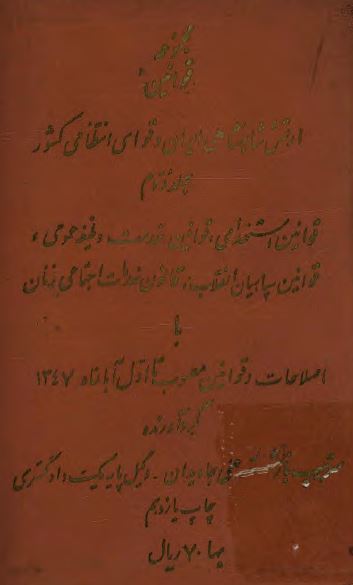 مجموعه
قوانین
ارتش شاهنشاهی ایران و قوای انتظامی کشور
جلد دوم
قوانین استخدامی، قوانین خدمت وظیفه عمومی،
قوانین سپاهیان انقلاب، قانون خدمات اجتماعی زنان
با
اصلاحات و قوانین مصوب تا اول آبانماه ۱۳۴۷
گردآورنده
جاویدان - وکیل پایه یک دادگستری
چاپ یازدهم
بها ۷۰ ریال